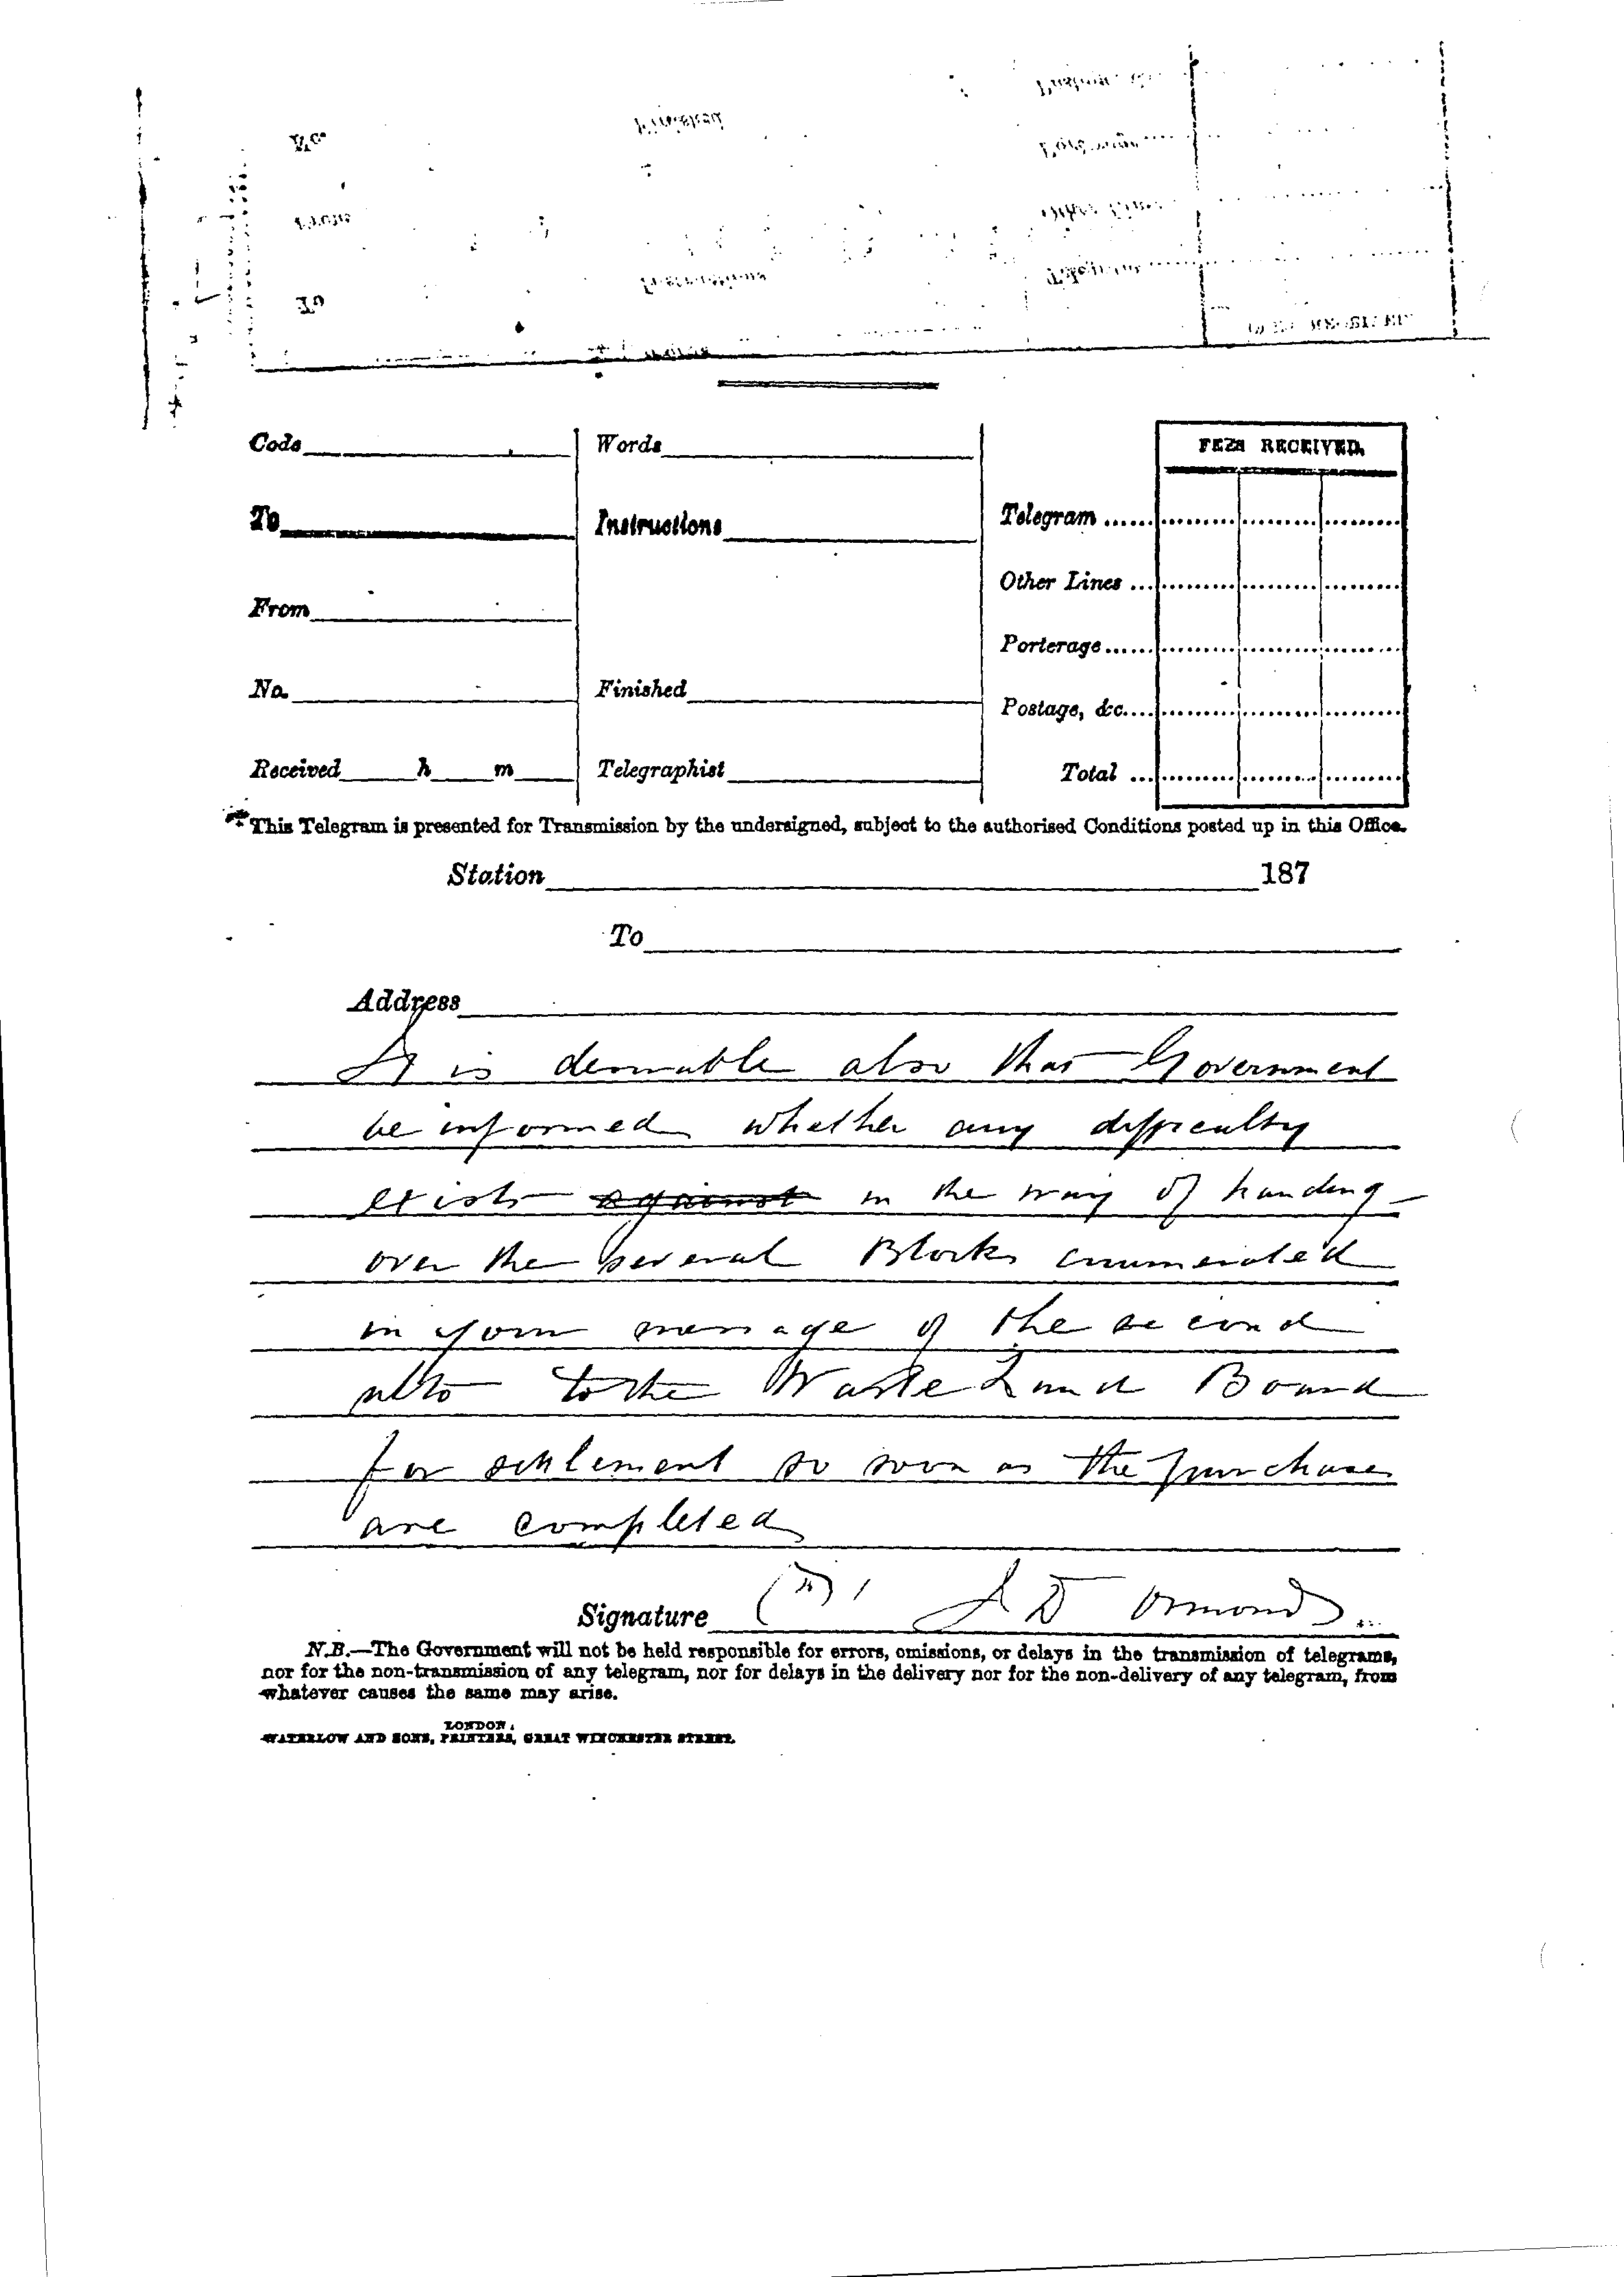 Code
Words
FEES RECEIVED.
To
Instructions
Telegram ......
Other Lines ...
From
Porterage......
No.
Finished
Postage, &c....
Received h m
Telegraphist
Total ...
This Telegram is presented for Transmission by the undersigned, subject to the authorised Conditions posted up in this Office.
Station 187
To
Address
It is desirable also that Government
be informed whether any difficulty
exists against in the way of handing
over the several Blocks enumerated
in your message of the second
ulto to the Waste Land Board
for settlement so soon as the purchases
are completed
Signature J D Ormond
N.B.—The Government will not be held responsible for errors, omissions, or delays in the transmission of telegrams,
nor for the non-transmission of any telegram, nor for delays in the delivery nor for the non-delivery of any telegram, from
whatever causes the same may arise.
LONDON:
WATERLOW AND SONS, PRINTERS, GREAT WINCHESTER STREET.